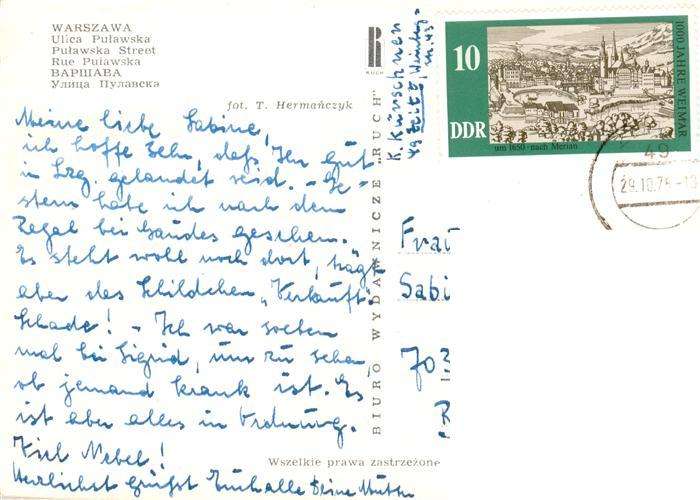 WARSZAWA
Ulica Puławska
Puławska Street
Rue Puławska
ВАРШАВА
Улица Пулавска
fot. T. Hermańczyk
Meine liebe Sabine,
ich hoffe sehr, daß Ihr gut
in Lzg. gelandet seid. - Ge-
stern habe ich nach dem
Regal bei Gaudes gesehen.
Es steht wohl noch dort, trägt
aber das Schildchen "Verkauft".
Schade! - Ich war soeben
mal bei Sigrid, um zu sehen,
ob jemand krank ist. Es
ist aber alles in Ordnung.
Viel Nebel!
Herzlichst grüßt Euch alle Deine Mutti
BIURO WYDAWNICZE „RUCH”
RUCH
Wszelkie prawa zastrzeżone
K. Kürschner
49 Zeitz,
10
DDR
um 1650 · nach Merian
1000 JAHRE WEIMAR
49
29.10.76-19
Frau
Sabi
703